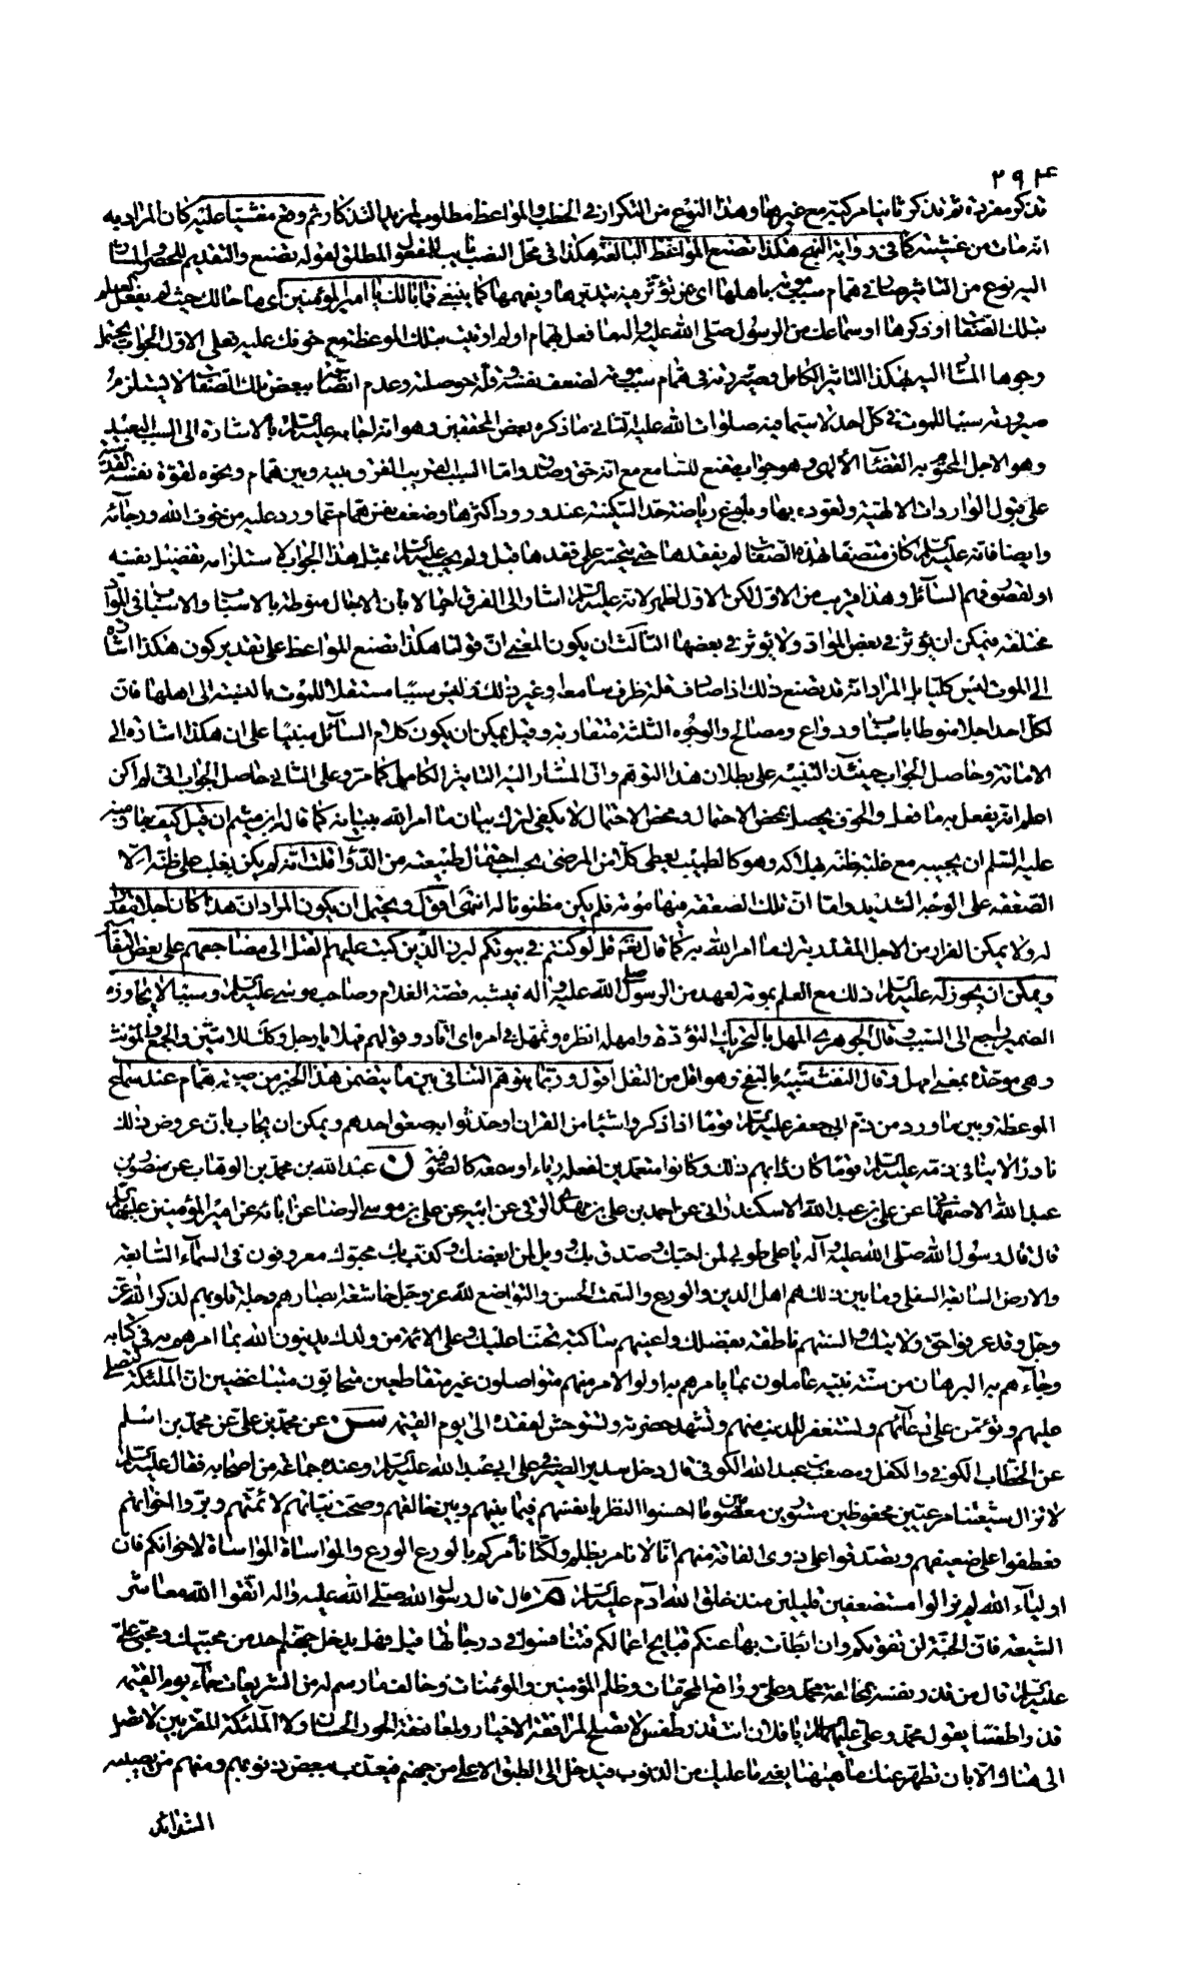 ٢٩۴
تذكر مفردة ثم تذكر ثانيا مركبة مع غيرها وهذا النوع من التكرار في الخطب والمواعظ مطلوب لمزيد التذكار ثم وقع مغشيا عليه كان المراد به
انه مات من غشيته كما في رواية النهج هكذا تصنع المواعظ البالغة هكذا في محل النصب نايب للمفعول المطلق لقوله تصنع والتقديم للحصر والمشار
اليه نوع من التاثير صار في همام سبب موته باهلها اى من تؤثر فيه ويتدبرها ويفهمها كما ينبغي فما بالك يا امير المؤمنين اى ما حالك حيث لم يفعل العلم
بتلك الصفات او ذكرها او سماعك من الرسول صلى الله عليه واله ما فعل بهمام او لم اتيت بتلك الموعظة مع خوفك عليه فعلى الاول الجواب يحتمل
وجوها المشار اليه بهكذا التاثير الكامل وصيرورته في همام سبب موته لضعف نفسه وقلة حوصلته وعدم اتصافه ببعض تلك الصفات لا يستلزم
صيرورته سببا للموت في كل احد لا سيما فيه صلوات الله عليه الثاني ما ذكره بعض المحققين وهو انه اجابه عليه السلام بالاشارة الى السبب البعيد
وهو الاجل المحتوم به القضاء الالهى وهو جواب مقنع للسامع مع انه حق وصدق واما السبب القريب الفرق بينه وبين همام ونحوه لقوة نفسه القدسية
على قبول الواردات الالهية وتعوده بها وبلوغ رياضته حد السكينة عند ورود اكثرها وضعف نفس همام عما ورد عليه من خوف الله ورجائه
وايضا فانه عليه السلام كان متصفا بهذه الصفات لم يفقدها حتى يتحسر على فقدها قيل ولم يجب عليه السلام بمثل هذا الجواب لاستلزامه تفضيل نفسه
او لقصور فهم السائل وهذا قريب من الاول لكن الاول اظهر لانه عليه السلام اشار الى الفرق اجمالا بان الاجال منوطة بالاسباب والاسباب في المواد
مختلفة فيمكن ان يؤثر في بعض المواد ولا يؤثر في بعضها الثالث ان يكون المعنى ان قولنا هكذا تصنع المواعظ على تقدير كون هكذا اشارة
الى الموت ليس كليا بل المراد انه قد يصنع ذلك اذا صادف قلة ظرف سامعه وغير ذلك وليس سببا مستقلا للموت بالنسبة الى اهلها فان
لكل احد اجلا منوطا باسباب ودواع ومصالح والوجوه الثلثة متقاربة وقيل يمكن ان يكون كلام السائل مبنيا على ان هكذا اشارة الى
الاماتة وحاصل الجواب حينئذ التنبيه على بطلان هذا التوهم وان المشار اليه التاثير الكامل كما مر وعلى الثاني حاصل الجواب انى لم اكن
اعلم انه يفعل به ما فعل والخوف يحصل بمحض الاحتمال ومحض الاحتمال لا يكفي لترك بيان ما امر الله ببيانه كما قال ابن ميثم ان قيل كيف جاز منه
عليه السلام ان يجيبه مع غلبة ظنه بهلاكه وهو كالطبيب يعطى كلا من المرضى بحسب احتمال طبيعته من الدواء قلت انه لم يكن يغلب على ظنه الا
الصعقة على الوجد الشديد واما ان تلك الصعقة فيها موته فلم يكن مظنونا له انتهى اقول ويحتمل ان يكون المراد ان هذا كان اجلا مقدرا
له ولا يمكن الفرار من الاجل المقدر بترك ما امر الله به كما قال تعالى قل لو كنتم في بيوتكم لبرز الذين كتب عليهم القتل الى مضاجعهم على بعض التفاسير
ويمكن ان يجوز له عليه السلام ذلك مع العلم بموته لعهد من الرسول صلى الله عليه واله فيشبه قصة الغلام وصاحب موسى عليه السلام وسببا لا يتجاوزه
الضمير راجع الى السبب وقال الجوهري المهل بالتحريك التؤدة وامهله انظره وتمهل في امره اى اتاد وقولهم مهلا يا رجل وكذلك للاثنين والجمع والمؤنث
وهي موحدة بمعنى امهل وقال النفث شبيه بالنفخ وهو اقل من التفل اقول وربما يتوهم التنافي بين ما يتضمن هذا الخبر من صيحة همام عند سماع
الموعظة وبين ما ورد من ذم ابى جعفر عليه السلام قوما اذا ذكروا شيئا من القران او حدثوا به صعق احدهم ويمكن ان يجاب بان عروض ذلك
نادرا لا ينافي ذمه عليه السلام قوما كان دابهم ذلك وكانوا متعمدين لفعله رياء او سمعة كالصوفية ن عبد الله بن محمد بن الوهاب عن منصور بن
عبد الله الاصفهاني عن علي بن عبد الله الاسكندراني عن احمد بن علي بن مهدى الرقي عن ابيه عن علي بن موسى الرضا عن ابائه عن امير المؤمنين عليهم السلام
قال قال رسول الله صلى الله عليه وآله يا علي طوبى لمن احبك وصدق بك وويل لمن ابغضك وكذب بك محبوك معروفون في السماء السابعة
والارض السابعة السفلى وما بين ذلك هم اهل الدين والورع والسمت الحسن والتواضع لله عز وجل خاشعة ابصارهم وجلة قلوبهم لذكر الله عز
وجل وقد عرفوا حق ولايتك والسنتهم ناطقة بفضلك واعينهم ساكبة تحننا عليك وعلى الائمة من ولدك يدينون الله بما امرهم به في كتابه
وجاءهم به البرهان من سنة نبيه عاملون بما يامرهم به اولوا الامر منهم متواصلون غير متقاطعين متحابون غير متباغضين ان الملئكة لتصلى
عليهم وتؤمن على دعائهم وتستغفر للمذنب منهم وتشهد حضرته وتستوحش لفقده الى يوم القيمة سر عن محمد بن علي عن محمد بن اسلم
عن الخطاب الكوفي ومصعب بن عبد الله الكوفي قال دخل سدير الصيرفي على ابى عبد الله عليه السلام وعنده جماعة من اصحابه فقال عليه السلام
لا تزال شيعتنا مرعيين محفوظين مستورين معصومين ما احسنوا النظر لانفسهم فيما بينهم وبين خالقهم وصحت نياتهم لائمتهم وبروا اخوانهم
فعطفوا على ضعيفهم وتصدقوا على ذوى الفاقة منهم انا لا نامر بظلم ولكنا نأمركم بالورع الورع والمواساة المواساة لاخوانكم فان
اولياء الله لم يزالوا مستضعفين قليلين منذ خلق الله آدم عليه السلام م قال قال رسول الله صلى الله عليه واله اتقوا الله معاشر
الشيعة فان الجنة لن تفوتكم وان ابطات بها عنكم قبايح اعمالكم فتنافسوا في درجاتها قيل فهل يدخل جهنم احد من محبيك ومحبى علي
عليه السلام قال من قذر نفسه بمخالفة محمد وعلي وواقع المحرمات وظلم المؤمنين والمؤمنات وخالف ما رسم له من الشريعات جاء يوم القيمة
قذرا طفسا يقول محمد وعلي عليهما السلام يا فلان انت قذر طفس لا تصلح لمرافقة الاخيار ولا لمعانقة الحور الحسان ولا الملئكة المقربين لا تصل
الى هناك الا بان تطهر عنك ما ههنا يعنى ما عليك من الذنوب فيدخل الى الطبق الاعلى من جهنم فيعذب ببعض ذنوبهم ومنهم من يصيبه
الشدائد